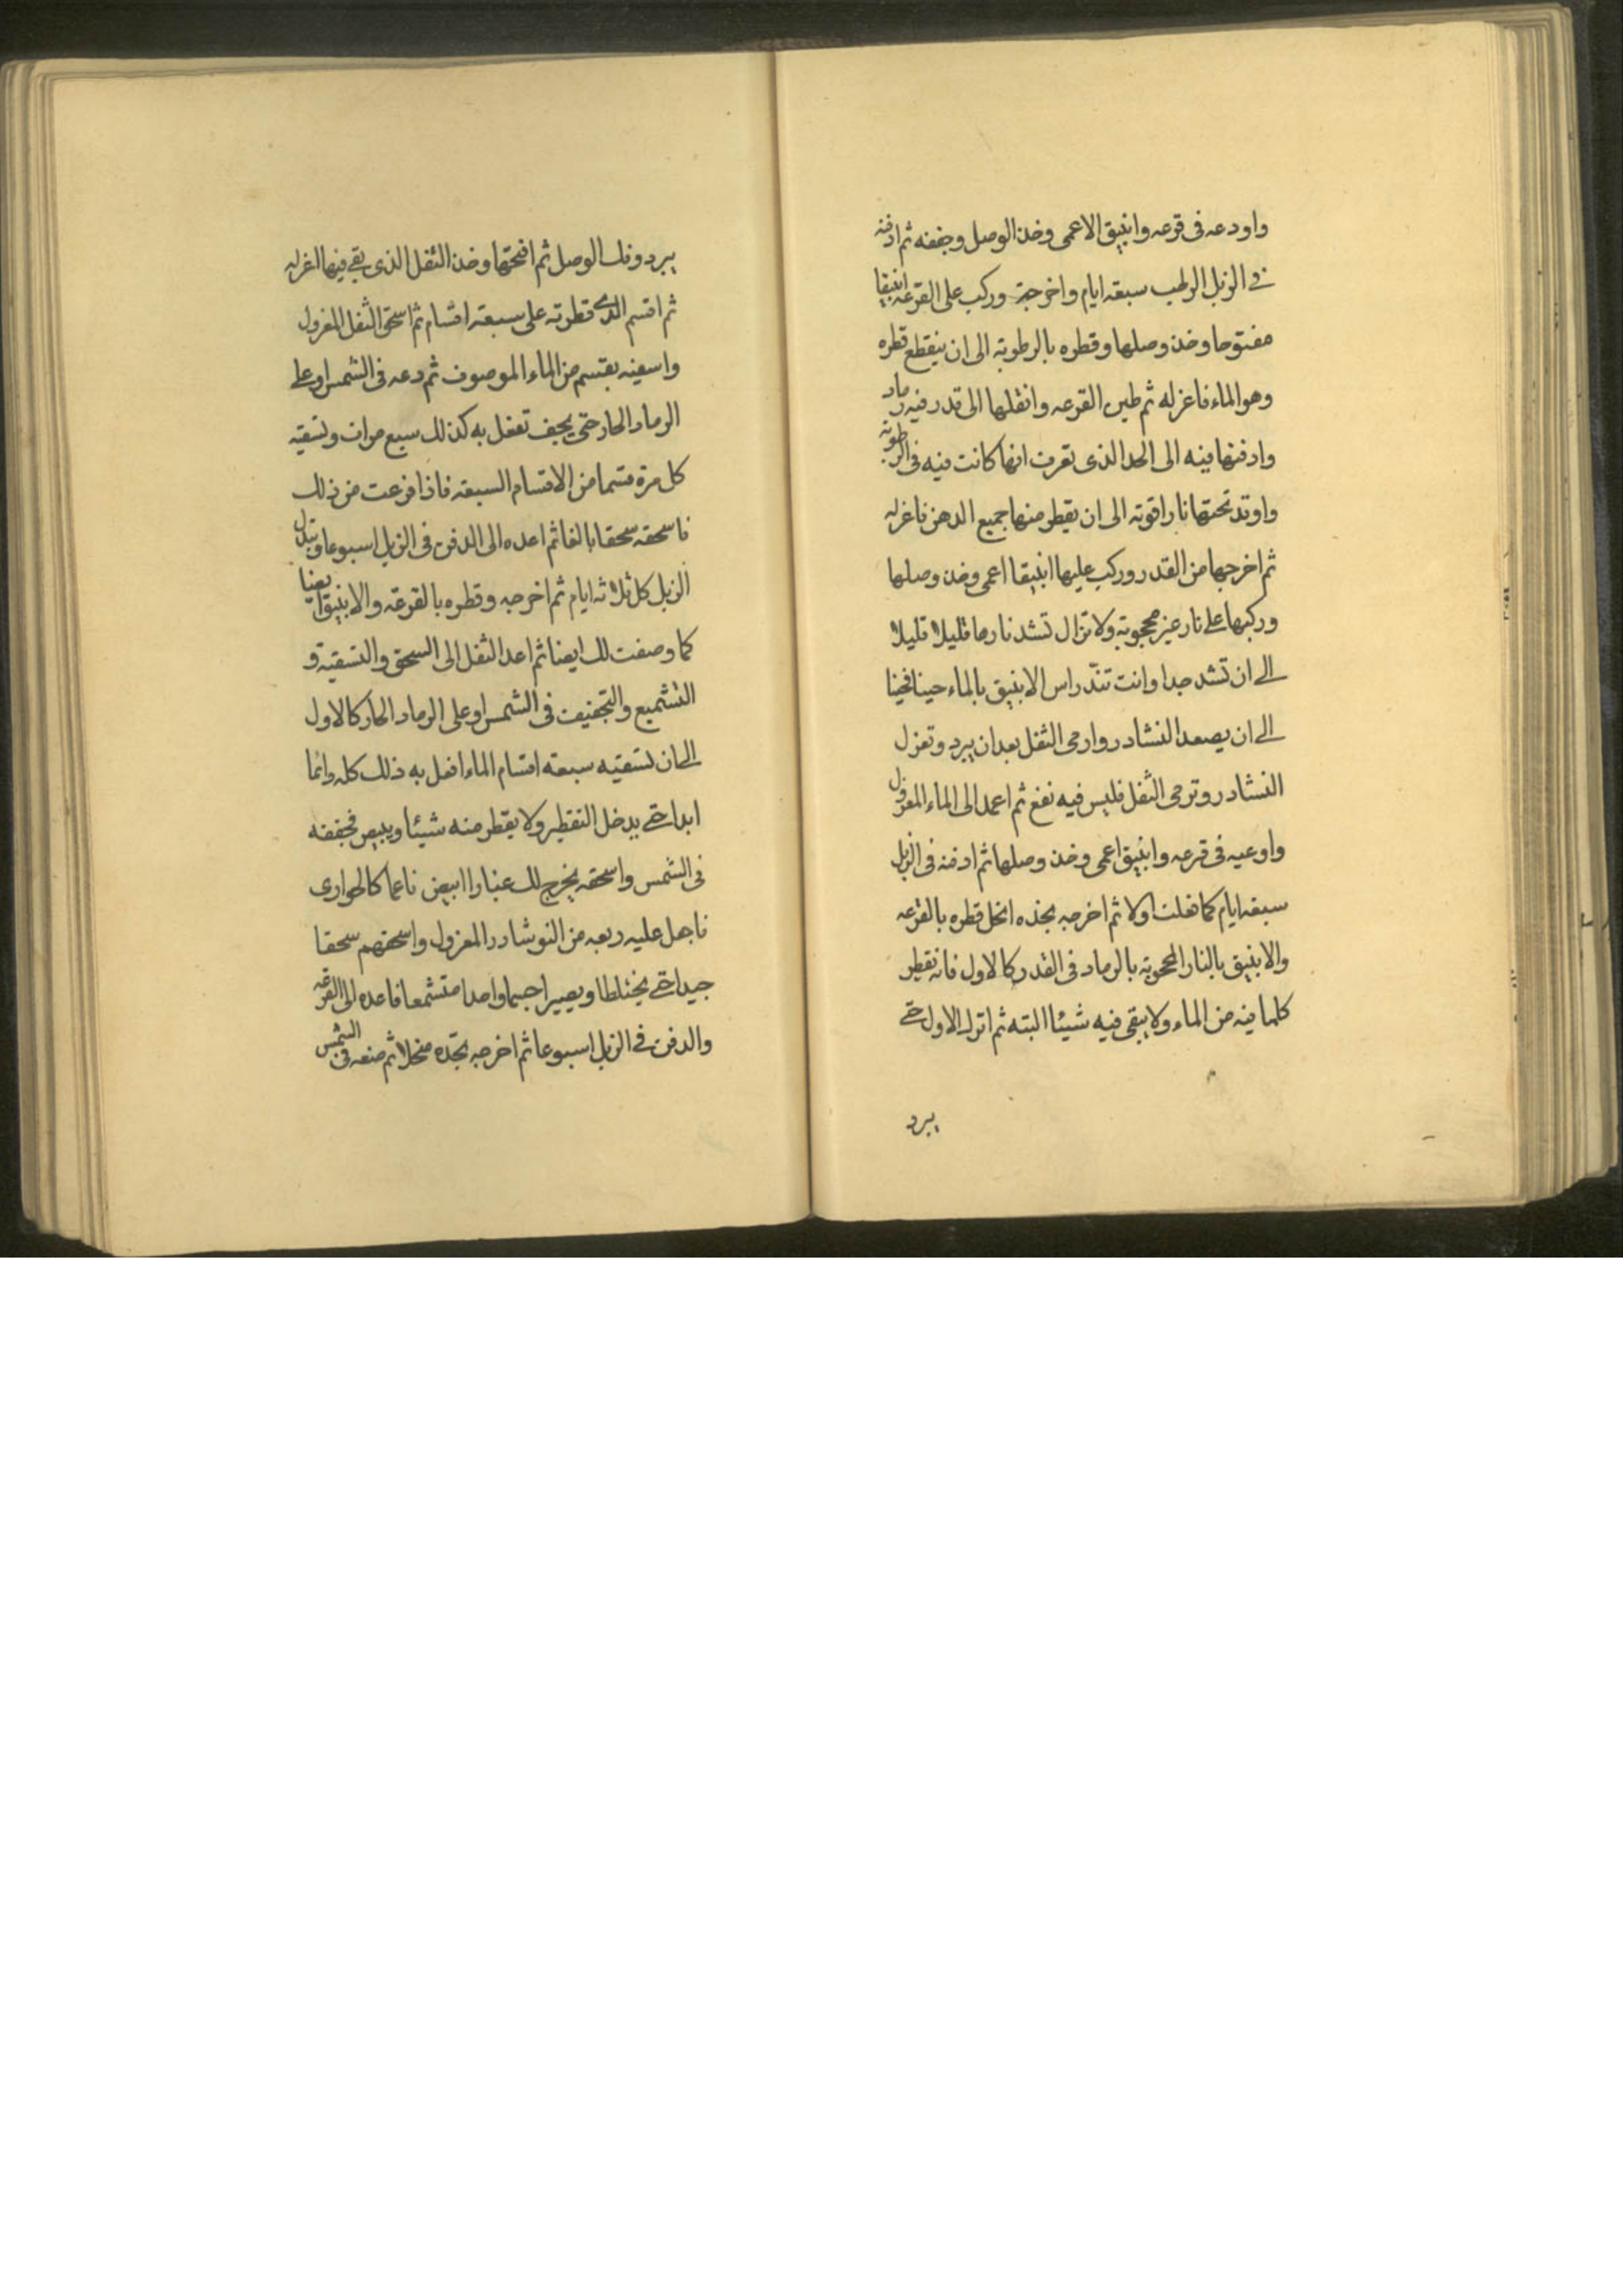 واودعه فى قرعه وانبيق الاعمى وخذ الوصل وجففه ثم ادفنه
فى الزبل الرطب سبعة ايام واخرجه وركب على القرعه انبيقا
مفتوحا وخذ وصلها وقطره بالرطوبة الى ان ينقطع قطره
وهو الماء فاعزله ثم طين القرعه وانقلها الى قدر فيه رماد
وادفنها فيه الى الحد الذى تعرف انها كانت فيه فى الرطوبة
واوقد تحتها نارا قوية الى ان يقطر منها جميع الدهن فاعزله
ثم اخرجها من القدر وركب عليها انبيقا اعمى وخذ وصلها
وركبها على نار غير محجوبة ولا تزال تشد نارها قليلا قليلا
الى ان تشد جدا وانت تندّ راس الانبيق بالماء حينا فحينا
الى ان يصعد النشادر وارمى الثفل بعد ان يبرد وتعزل
النشادر وترمى الثفل فليس فيه نفع ثم اعمد الى الماء المعزول
واوعيه فى قرعه وانبيق اعمى وخذ وصلها ثم ادفنه فى الزبل
سبعة ايام كما فعلت اولا ثم اخرجه تجده انحل قطره بالقرعه
والانبيق بالنار المحجوبة بالرماد فى القدر كالاول فانه نقطر
كلما فيه من الماء ولا يبقى فيه شيئا البته ثم اترك الاول حتى
يبرد
يبرد وفك الوصل ثم افتحها وخذ الثفل الذى بقى فيها اعزله
ثم اقسم الذى قطرته على سبعة اقسام ثم اسحق الثفل المعزول
واسقيه بقسم من الماء الموصوف ثم دعه فى الشمس او على
الرماد الحار حتى يجف تفعل به كذلك سبع مرات وتسقيه
كل مرة قسما من الاقسام السبعة فاذا فرغت من ذلك
فاسحقه سحقا بالغا ثم اعده الى الدفن فى الزبل اسبوعا وتبدل
الزبل كل ثلاثة ايام ثم اخرجه وقطره بالقرعة والانبيق ايضا
كما وصفت لك ايضا ثم اعد الثفل الى السحق والتسقية و
التشميع والتجفيف فى الشمس او على الرماد الحار كالاول
الى ان تسقيه سبعة اقسام الماء افعل به ذلك كله دائما
ابدا حتى يدخل التقطير ولا يقطر منه شيئا ويبيض فجففه
فى الشمس واسحقه يخرج لك غبارا ابيض ناعما كالحوارى
فاجعل عليه ربعه من النوشادر المعزول واسحقهم سحقا
جيدا حتى يختلطا ويصيرا جسما واحدا متشمعا فاعده الى القرعه
والدفن فى الزبل اسبوعا ثم اخرجه تجّده منحلا ثم ضعه فى الشمس